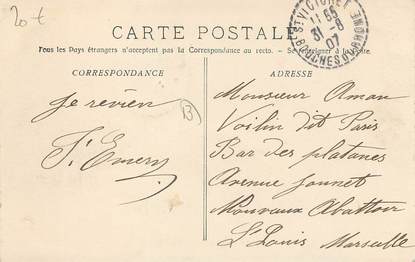 20 t
CARTE POSTALE
Tous les Pays étrangers n'acceptent pas la Correspondance au recto. - Se renseigner à la Poste.
CORRESPONDANCE
Je revien
J. Emery
B
ADRESSE
Monsieur Aman
Voilin dit Paris
Bar des platanes
Avenue Jonnet
Nouveaux Abattoir
St Louis Marseille
ST VICTORET
BOUCHES DU RHONE
31 8
07